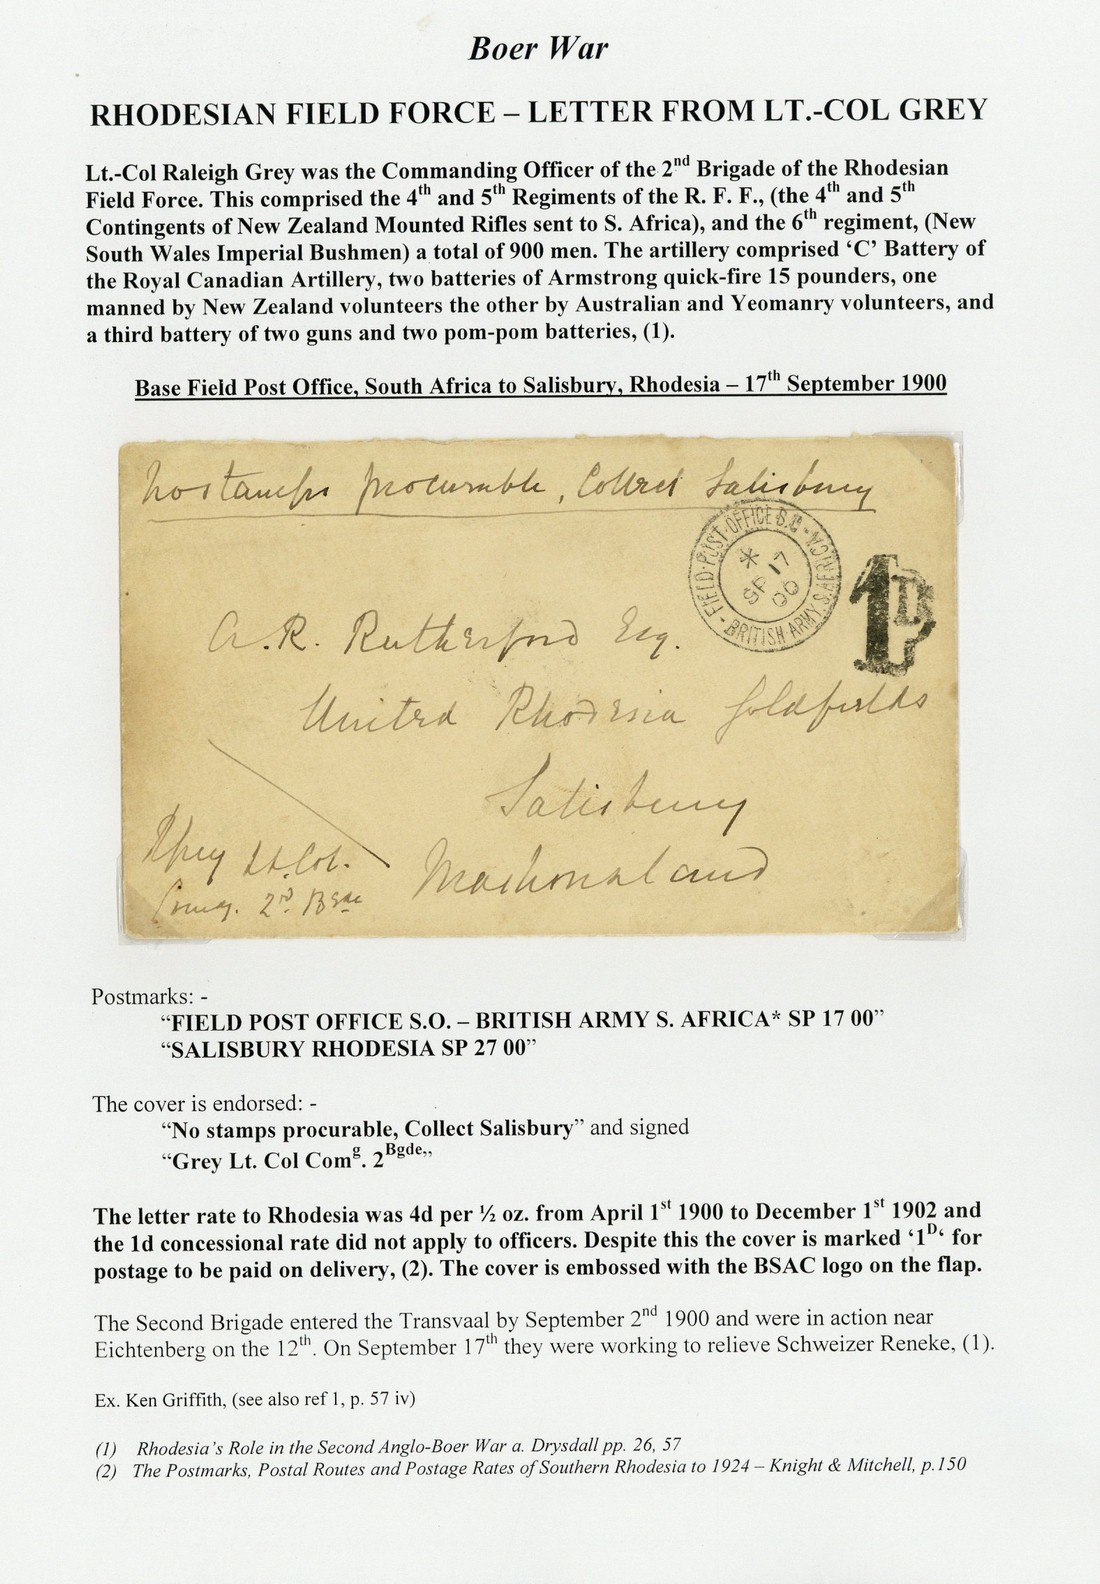 Boer War
RHODESIAN FIELD FORCE – LETTER FROM LT.-COL GREY
Lt.-Col Raleigh Grey was the Commanding Officer of the 2nd Brigade of the Rhodesian
Field Force. This comprised the 4th and 5th Regiments of the R. F. F., (the 4th and 5th
Contingents of New Zealand Mounted Rifles sent to S. Africa), and the 6th regiment, (New
South Wales Imperial Bushmen) a total of 900 men. The artillery comprised ‘C’ Battery of
the Royal Canadian Artillery, two batteries of Armstrong quick-fire 15 pounders, one
manned by New Zealand volunteers the other by Australian and Yeomanry volunteers, and
a third battery of two guns and two pom-pom batteries, (1).
Base Field Post Office, South Africa to Salisbury, Rhodesia – 17th September 1900
No stamps procurable, Collect Salisbury
FIELD·POST·OFFICE S.O. - BRITISH·ARMY S. AFRICA
* SP 17 00
1D
A.R. Rutherford Esq.
United Rhodesia Goldfields
Salisbury
Mashonaland
RGrey Lt. Col.
Comg. 2d Bgde
Postmarks: -
“FIELD POST OFFICE S.O. – BRITISH ARMY S. AFRICA* SP 17 00”
“SALISBURY RHODESIA SP 27 00”
The cover is endorsed: -
“No stamps procurable, Collect Salisbury” and signed
“Grey Lt. Col Comg. 2Bgde,,
The letter rate to Rhodesia was 4d per ½ oz. from April 1st 1900 to December 1st 1902 and
the 1d concessional rate did not apply to officers. Despite this the cover is marked ‘1D‘ for
postage to be paid on delivery, (2). The cover is embossed with the BSAC logo on the flap.
The Second Brigade entered the Transvaal by September 2nd 1900 and were in action near
Eichtenberg on the 12th. On September 17th they were working to relieve Schweizer Reneke, (1).
Ex. Ken Griffith, (see also ref 1, p. 57 iv)
(1) Rhodesia’s Role in the Second Anglo-Boer War a. Drysdall pp. 26, 57
(2) The Postmarks, Postal Routes and Postage Rates of Southern Rhodesia to 1924 – Knight & Mitchell, p.150